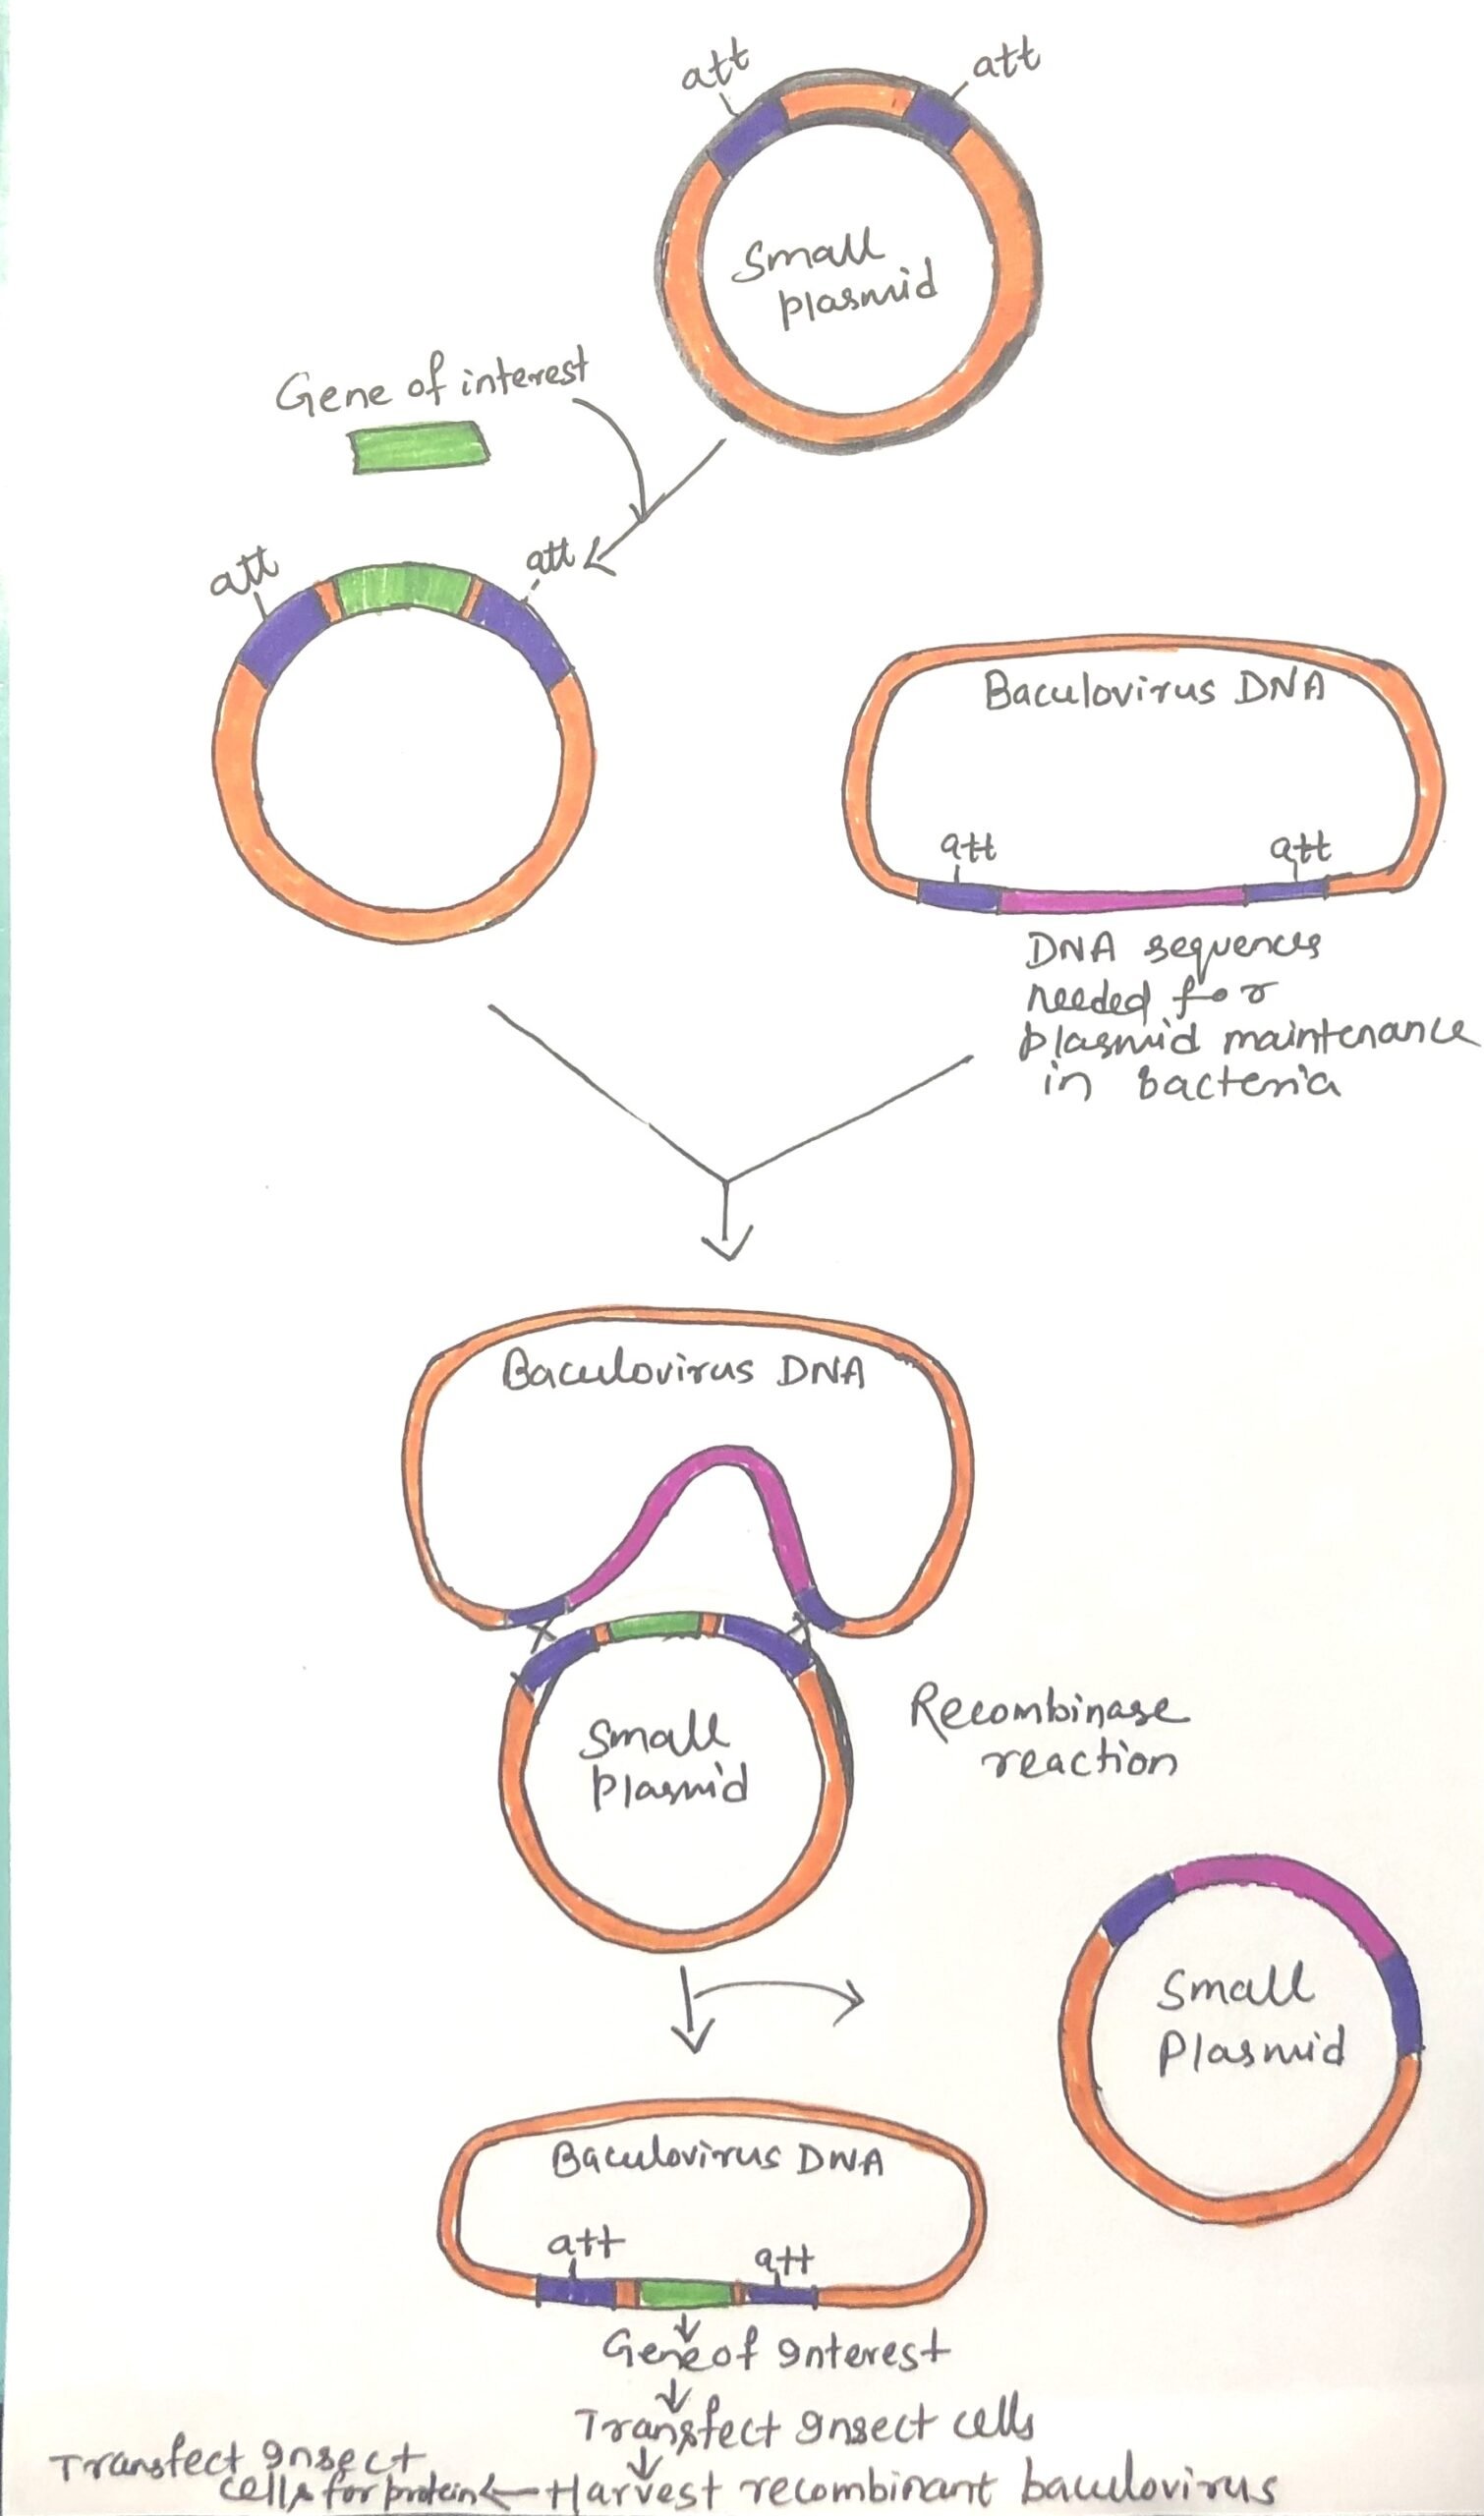 att
att
Small
plasmid
Gene of interest
att
att
Baculovirus DNA
att
att
DNA sequences
needed for
plasmid maintenance
in bacteria
Baculovirus DNA
Small
plasmid
Recombinase
reaction
Small
Plasmid
Baculovirus DNA
att
att
Gene of Interest
Transfect Insect cells
Harvest recombinant baculovirus
Transfect Insect
cells for protein